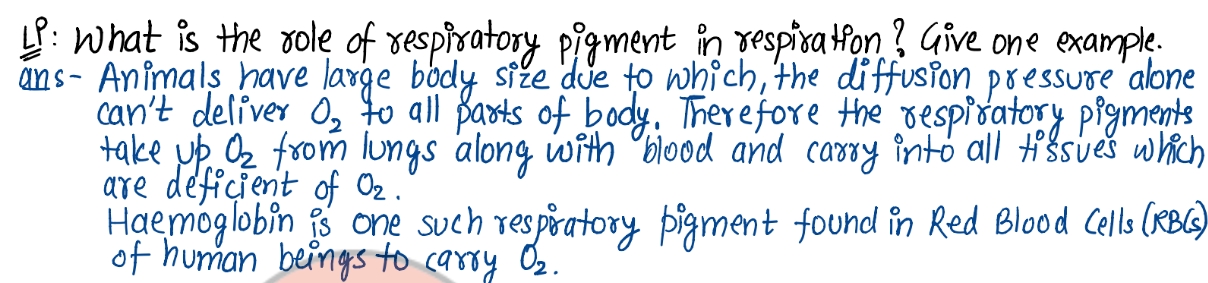 LP: What is the role of respiratory pigment in respiration? Give one example.
ans- Animals have large body size due to which, the diffusion pressure alone
can't deliver O₂ to all parts of body. Therefore the respiratory pigments
take up O₂ from lungs along with blood and carry into all tissues which
are deficient of O₂.
Haemoglobin is one such respiratory pigment found in Red Blood Cells (RBCs)
of human beings to carry O₂.